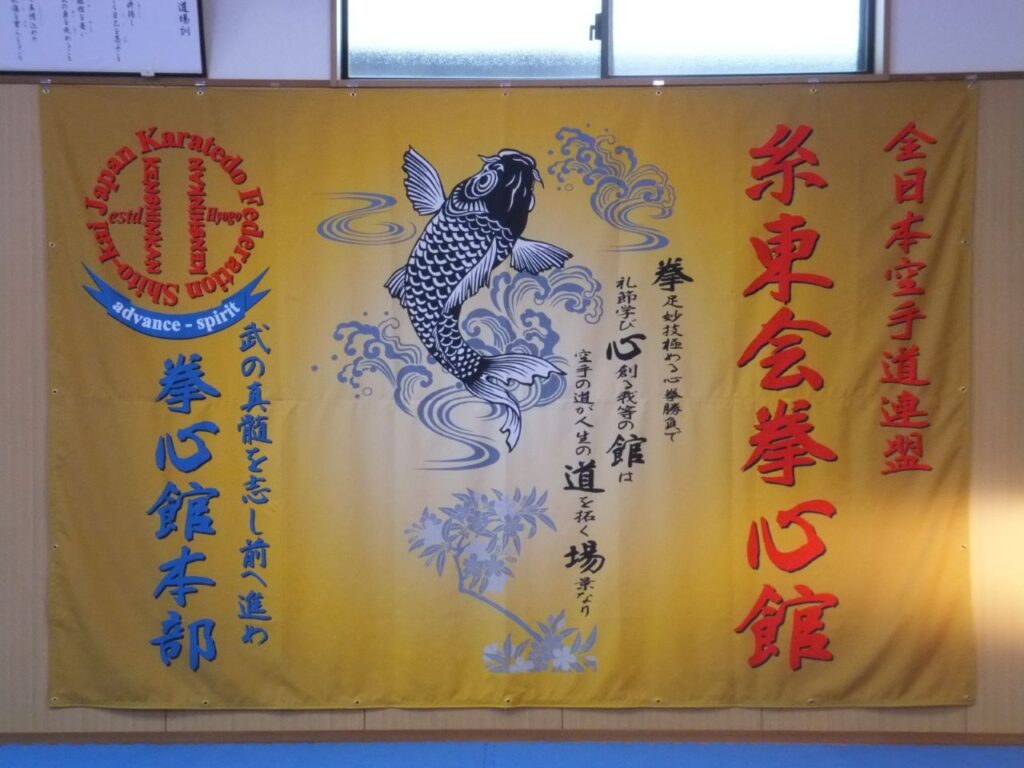 道場訓
全日本空手道連盟
糸東会拳心館
拳足妙技極める心拳勝負で
礼節学び心創る我等の館は
空手の道が人生の道を拓く場
なり
Japan Karatedo Federation Shito-kai
estd
Hyogo
KENSHINKAN
advance - spirit
武の真髄を志し前へ進め
拳心館本部